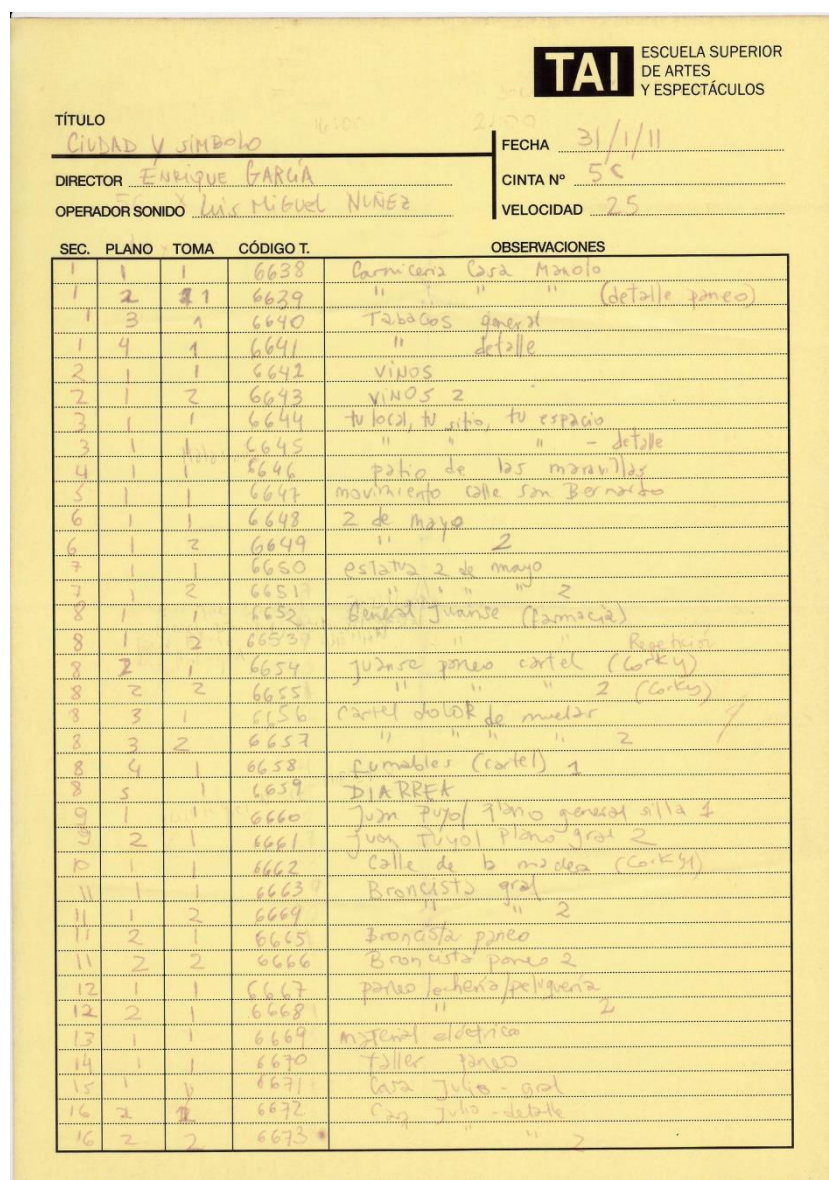 TAI ESCUELA SUPERIOR
DE ARTES
Y ESPECTÁCULOS
TÍTULO
CIUDAD Y SÍMBOLO
FECHA 31/1/11
DIRECTOR ENRIQUE GARCÍA
CINTA Nº
OPERADOR SONIDO Luis MiGuel NUÑEZ
VELOCIDAD 25
SEC. PLANO TOMA CÓDIGO T. OBSERVACIONES
1 1 1 6638 Carniceria Casa Manolo
1 2 1 6639 " " " (detalle paneo)
1 3 1 6640 Tabacos general
1 4 1 6641 " detalle
2 1 1 6642 VINOS
2 1 2 6643 VINOS 2
3 1 1 6644 tu local, tu sitio, tu espacio
3 1 1 6645 " " " - detalle
4 1 1 6646 patio de las maravillas
5 1 1 6647 movimiento calle san Bernardo
6 1 1 6648 2 de mayo
6 1 2 6649 " 2
7 1 1 6650 estatua 2 de mayo
7 1 2 6651 " " " " 2
8 1 1 6652 General Juanse (farmacia)
8 1 2 6653 " " Repetición
8 2 1 6654 Juanse paneo cartel (Corky)
8 2 2 6655 " " " 2 (Corky)
8 3 1 6656 cartel doloR de muelas
8 3 2 6657 " " " " 2
8 4 1 6658 fumables (cartel) 1
8 5 1 6659 DIARREA
9 1 1 6660 Juan Pujol plano general silla 1
9 2 1 6661 Juan Pujol plano gral 2
10 1 1 6662 Calle de la madera (Corky)
11 1 1 6663 Broncista gral
11 1 2 6664 " " 2
11 2 1 6665 Broncista paneo
11 2 2 6666 Broncista paneo 2
12 1 1 6667 paneo lechería/peluquería
12 2 1 6668 " 2
13 1 1 6669 material eléctrico
14 1 1 6670 taller paneo
15 1 1 6671 Casa Julio - gral
16 2 1 6672 Casa Julio - detalle
16 2 2 6673 " " 2